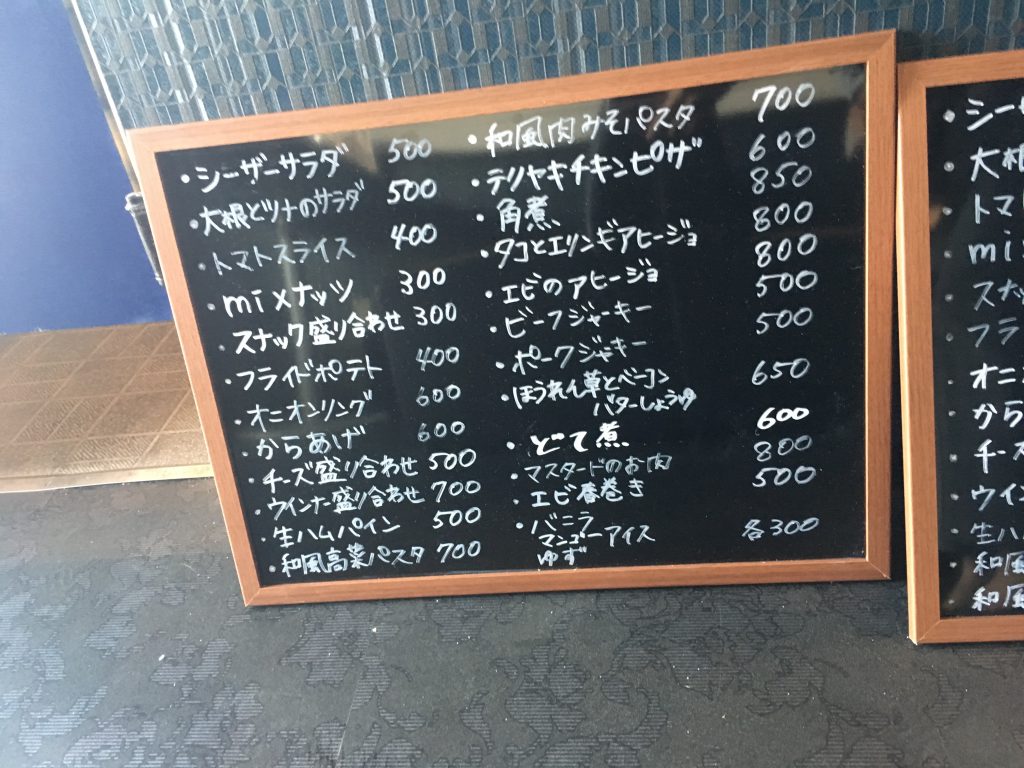 ・シーザーサラダ 500
・大根とツナのサラダ 500
・トマトスライス 400
・mixナッツ 300
・スナック盛り合わせ 300
・フライドポテト 400
・オニオンリング 600
・からあげ 600
・チーズ盛り合わせ 500
・ウインナー盛り合わせ 700
・生ハムパイン 500
・和風高菜パスタ 700
・和風肉みそパスタ 700
・テリヤキチキンピザ 600
・角煮 850
・タコとエリンギアヒージョ 800
・エビのアヒージョ 800
・ビーフジャーキー 500
・ポークジャキー 500
・ほうれん草とベーコン
バターしょうゆ 650
・どて煮 600
・マスタードのお肉 800
・エビ春巻き 500
・バニラ
マンゴーアイス 各300
ゆず
・シーザ
大根
・トマ
・mix
・スナッ
・フラ
・オニ
・から
・チー
・ウイン
・生ハム
・和風
・和風